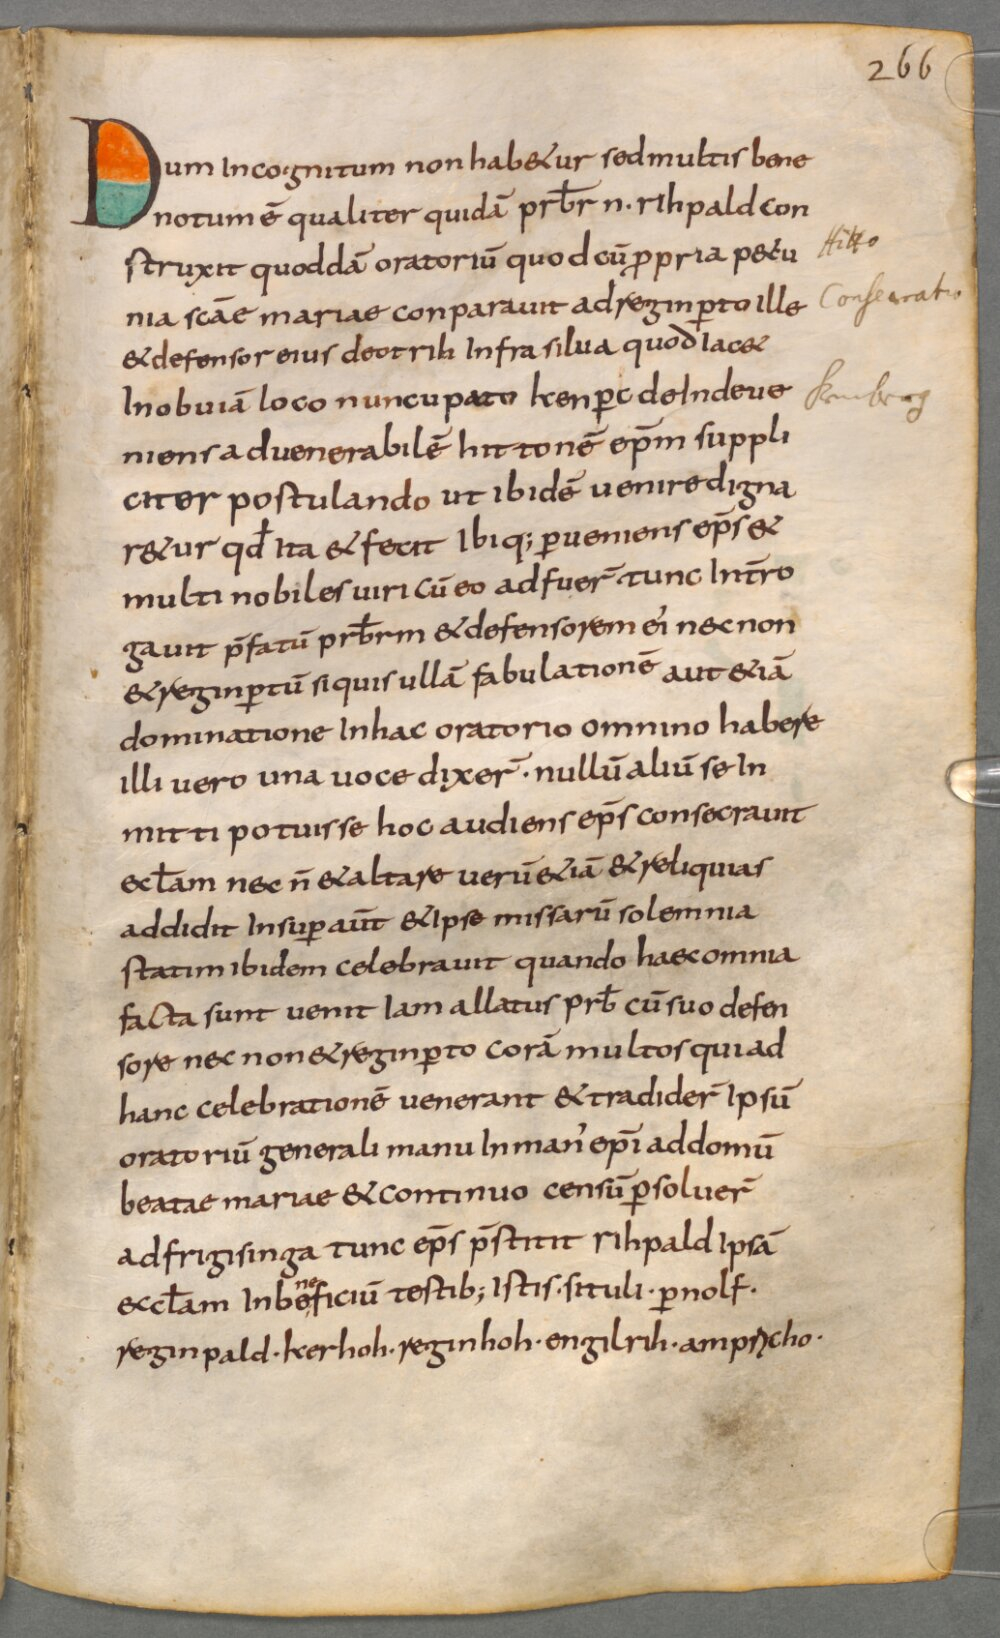 266
Dum Incognitum non hab&ur sed multis bene
notum ē qualiter quidā prb̄r n· rihpald con
struxit quoddā oratoriū quod cū ꝓpria pecu
Hitto
nia scāe mariae conparauit ad reginꝑto ille
Consecratio
& defensor eius deotrih Infra silua quod Iac&
In obuiā loco nuncupato kenꝑc de Inde ue
Kemberg
niens ad uenerabilē hittonē ep̄m suppli
citer postulando ut ibidē uenire digna
r&ur qd̄ Ita & fecit Ibiq; ꝑueniens ep̄s &
multi nobiles uiri cū eo adfuer̄ tunc Int̄ro
gauit p̄fatū prb̄rm & defensorem ei' nec non
& reginꝑtū si quis ullā fabulationē aut &iā
dominatione In hac oratorio omnino habere
illi uero una uoce dixer̄· nullū aliū se In
mitti potuisse hoc audiens ep̄s consecrauit
ecl̄am nec n̄ & altare uerū &iā & reliquias
addidit Insuꝑ aūt & Ipse missarū solemnia
statim ibidem celebrauit quando haec omnia
facta sunt uenit Iam allatus prb̄ cū suo defen
sore nec non & reginꝑto corā multos qui ad
hanc celebrationē uenerant & tradider̄ Ipsū
oratoriū generali manu In man' ep̄i ad domū
beatae mariae & continuo censū ꝑsoluer̄
ad frigisinga tunc ep̄s p̄stitit rihpald Ipsā
eccl̄am In beneficiū testib; Istis· situli· ꝑnolf·
reginpald· kerhoh· reginhoh· engilrih· ampricho·